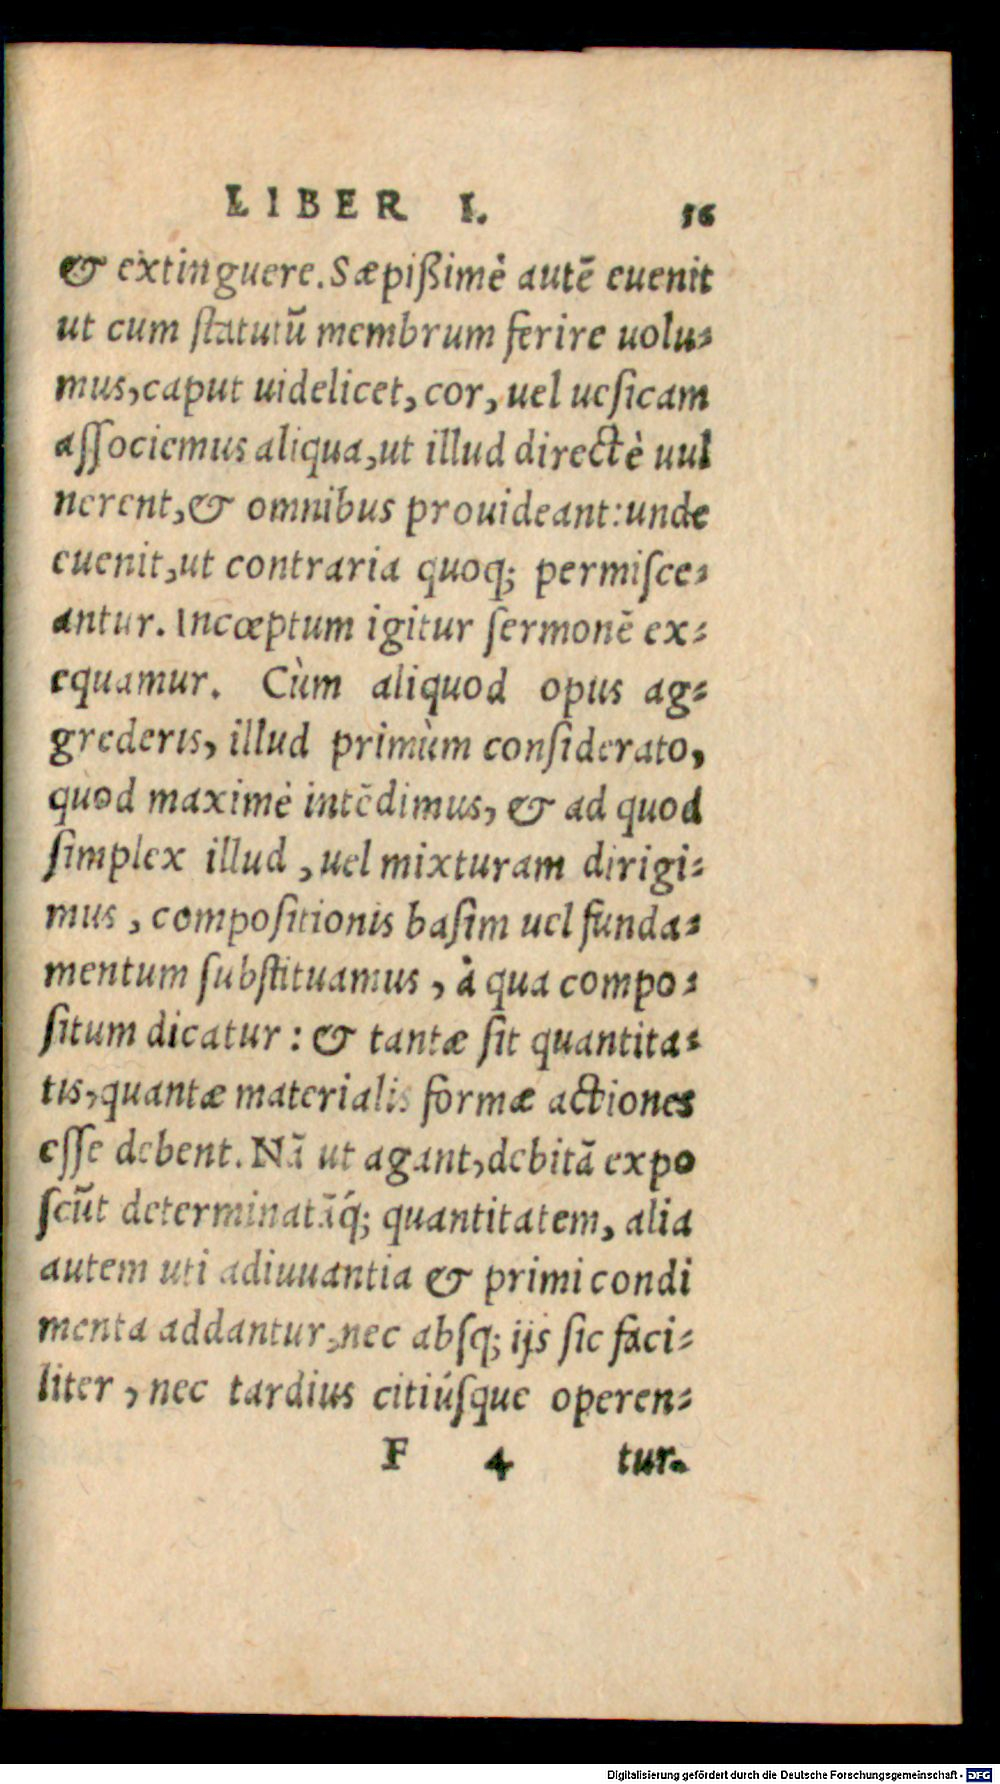 LIBER I. 56
& extinguere. Sæpißimè autē euenit
ut cum ſtatutū membrum ferire uolu-
mus, caput uidelicet, cor, uel ueſicam
aſſociemus aliqua, ut illud directè uul
nerent, & omnibus prouideant: unde
euenit, ut contraria quoq; permiſce-
antur. Incœptum igitur ſermonē ex-
equamur. Cùm aliquod opus ag-
grederis, illud primùm conſiderato,
quod maximè intēdimus, & ad quod
ſimplex illud, uel mixturam dirigi-
mus, compoſitionis baſim uel funda-
mentum ſubſtituamus, à qua compo-
ſitum dicatur: & tantæ ſit quantita-
tis, quantæ materialis formæ actiones
eſſe debent. Nā ut agant, debitā expo
ſcūt determinatāq́; quantitatem, alia
autem uti adiuuantia & primi condi
menta addantur, nec abſq; ijs ſic faci-
liter, nec tardius citiúſque operen-
F 4 tur.
Digitalisierung gefördert durch die Deutsche Forschungsgemeinschaft - DFG